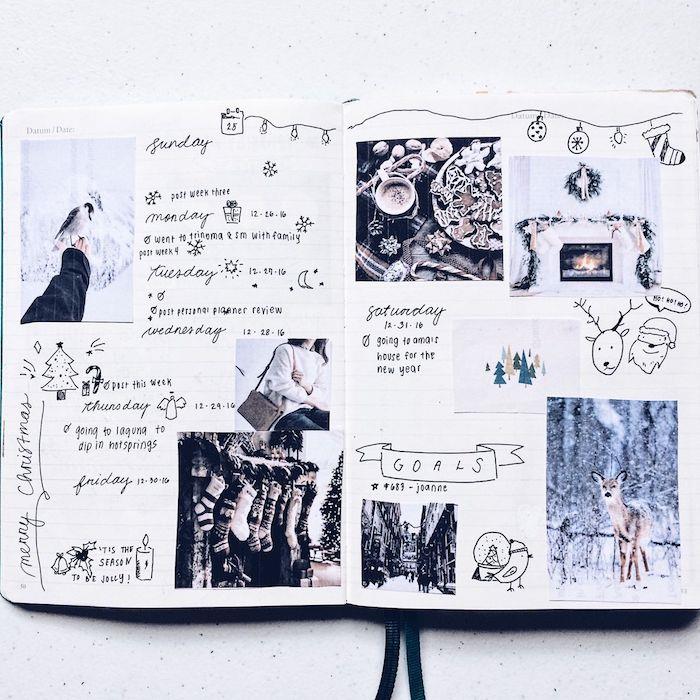 Datum / Date:
25
sunday
post week three
monday 12·26·16
went to trinoma & sm with family
post week 4
tuesday 12·27·16
post personal planner review
wednesday 12·28·16
post this week
thursday 12·29·16
going to laguna to
dip in hotsprings
friday 12·30·16
merry christmas
'TIS THE
SEASON
TO BE JOLLY!
Datum / Date:
saturday
12·31·16
going to ama's
house for the
new year
HO! HO! HO!
GOALS
- joanne